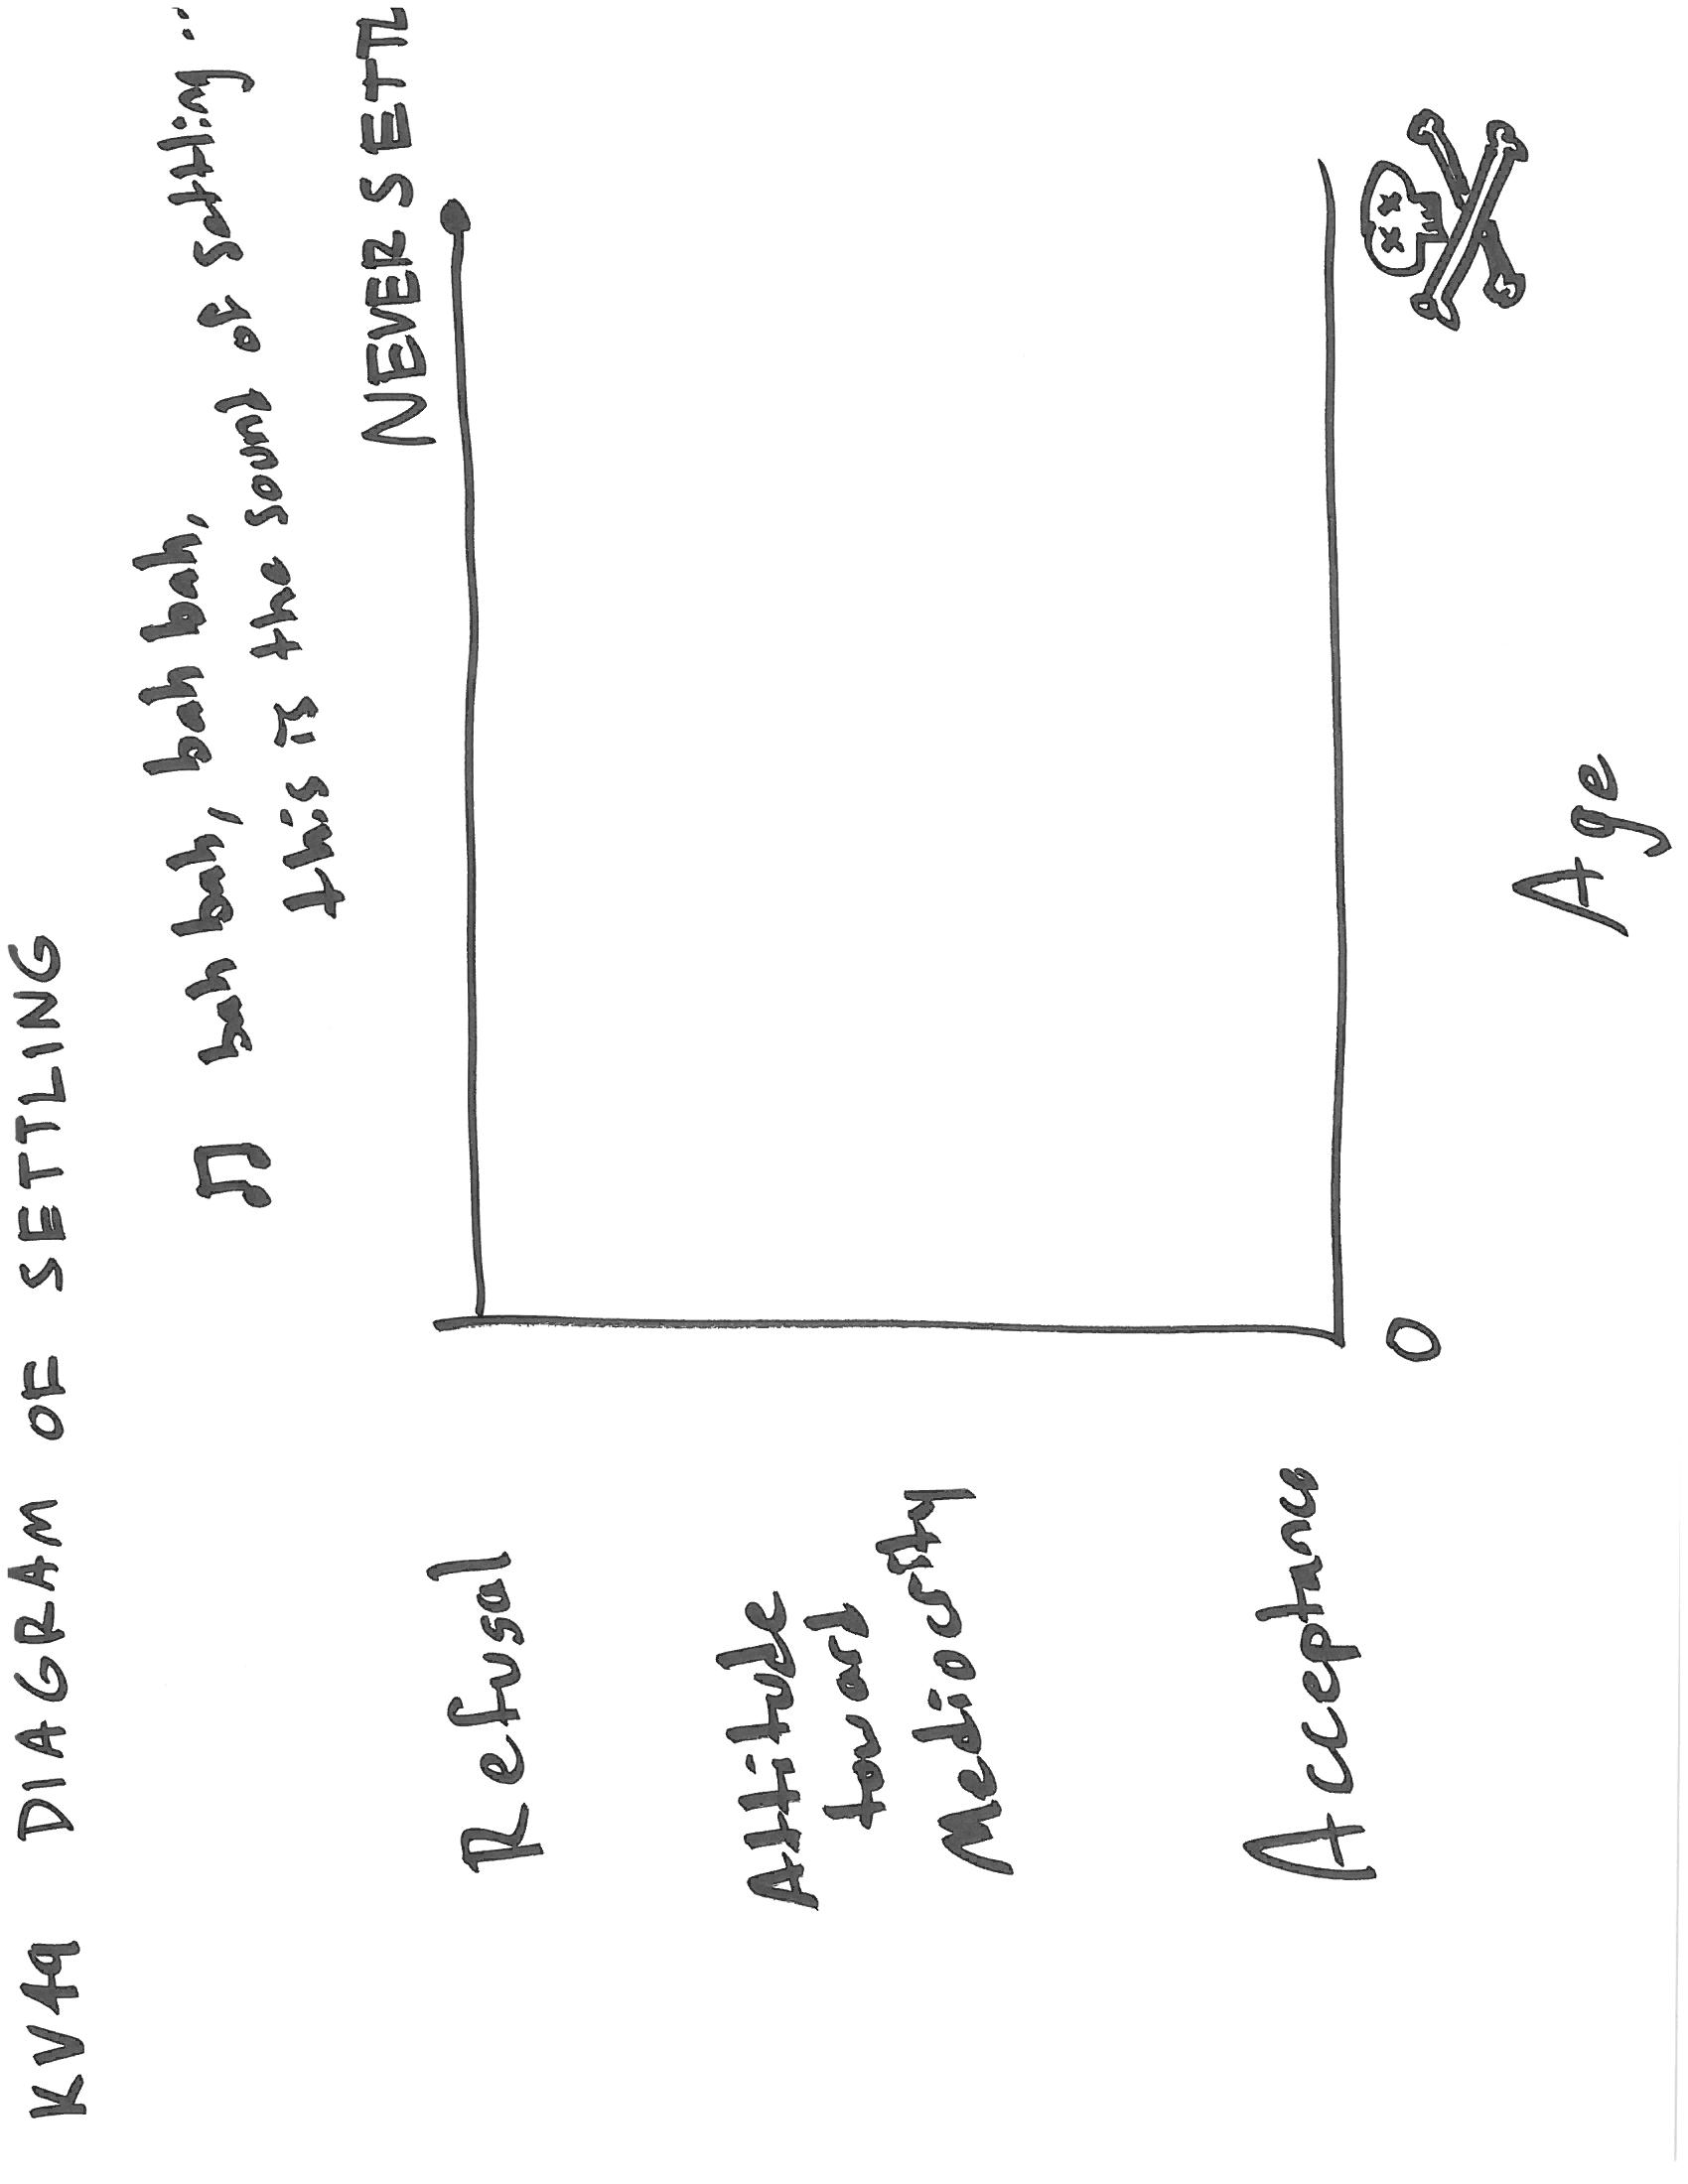 KV49 DIAGRAM OF SETTLING
♫ bah bah, bah bah,
this is the sound of settling..
NEVER SETTL
Refusal
Attitude
toward
Mediocrity
Acceptance
0
Age